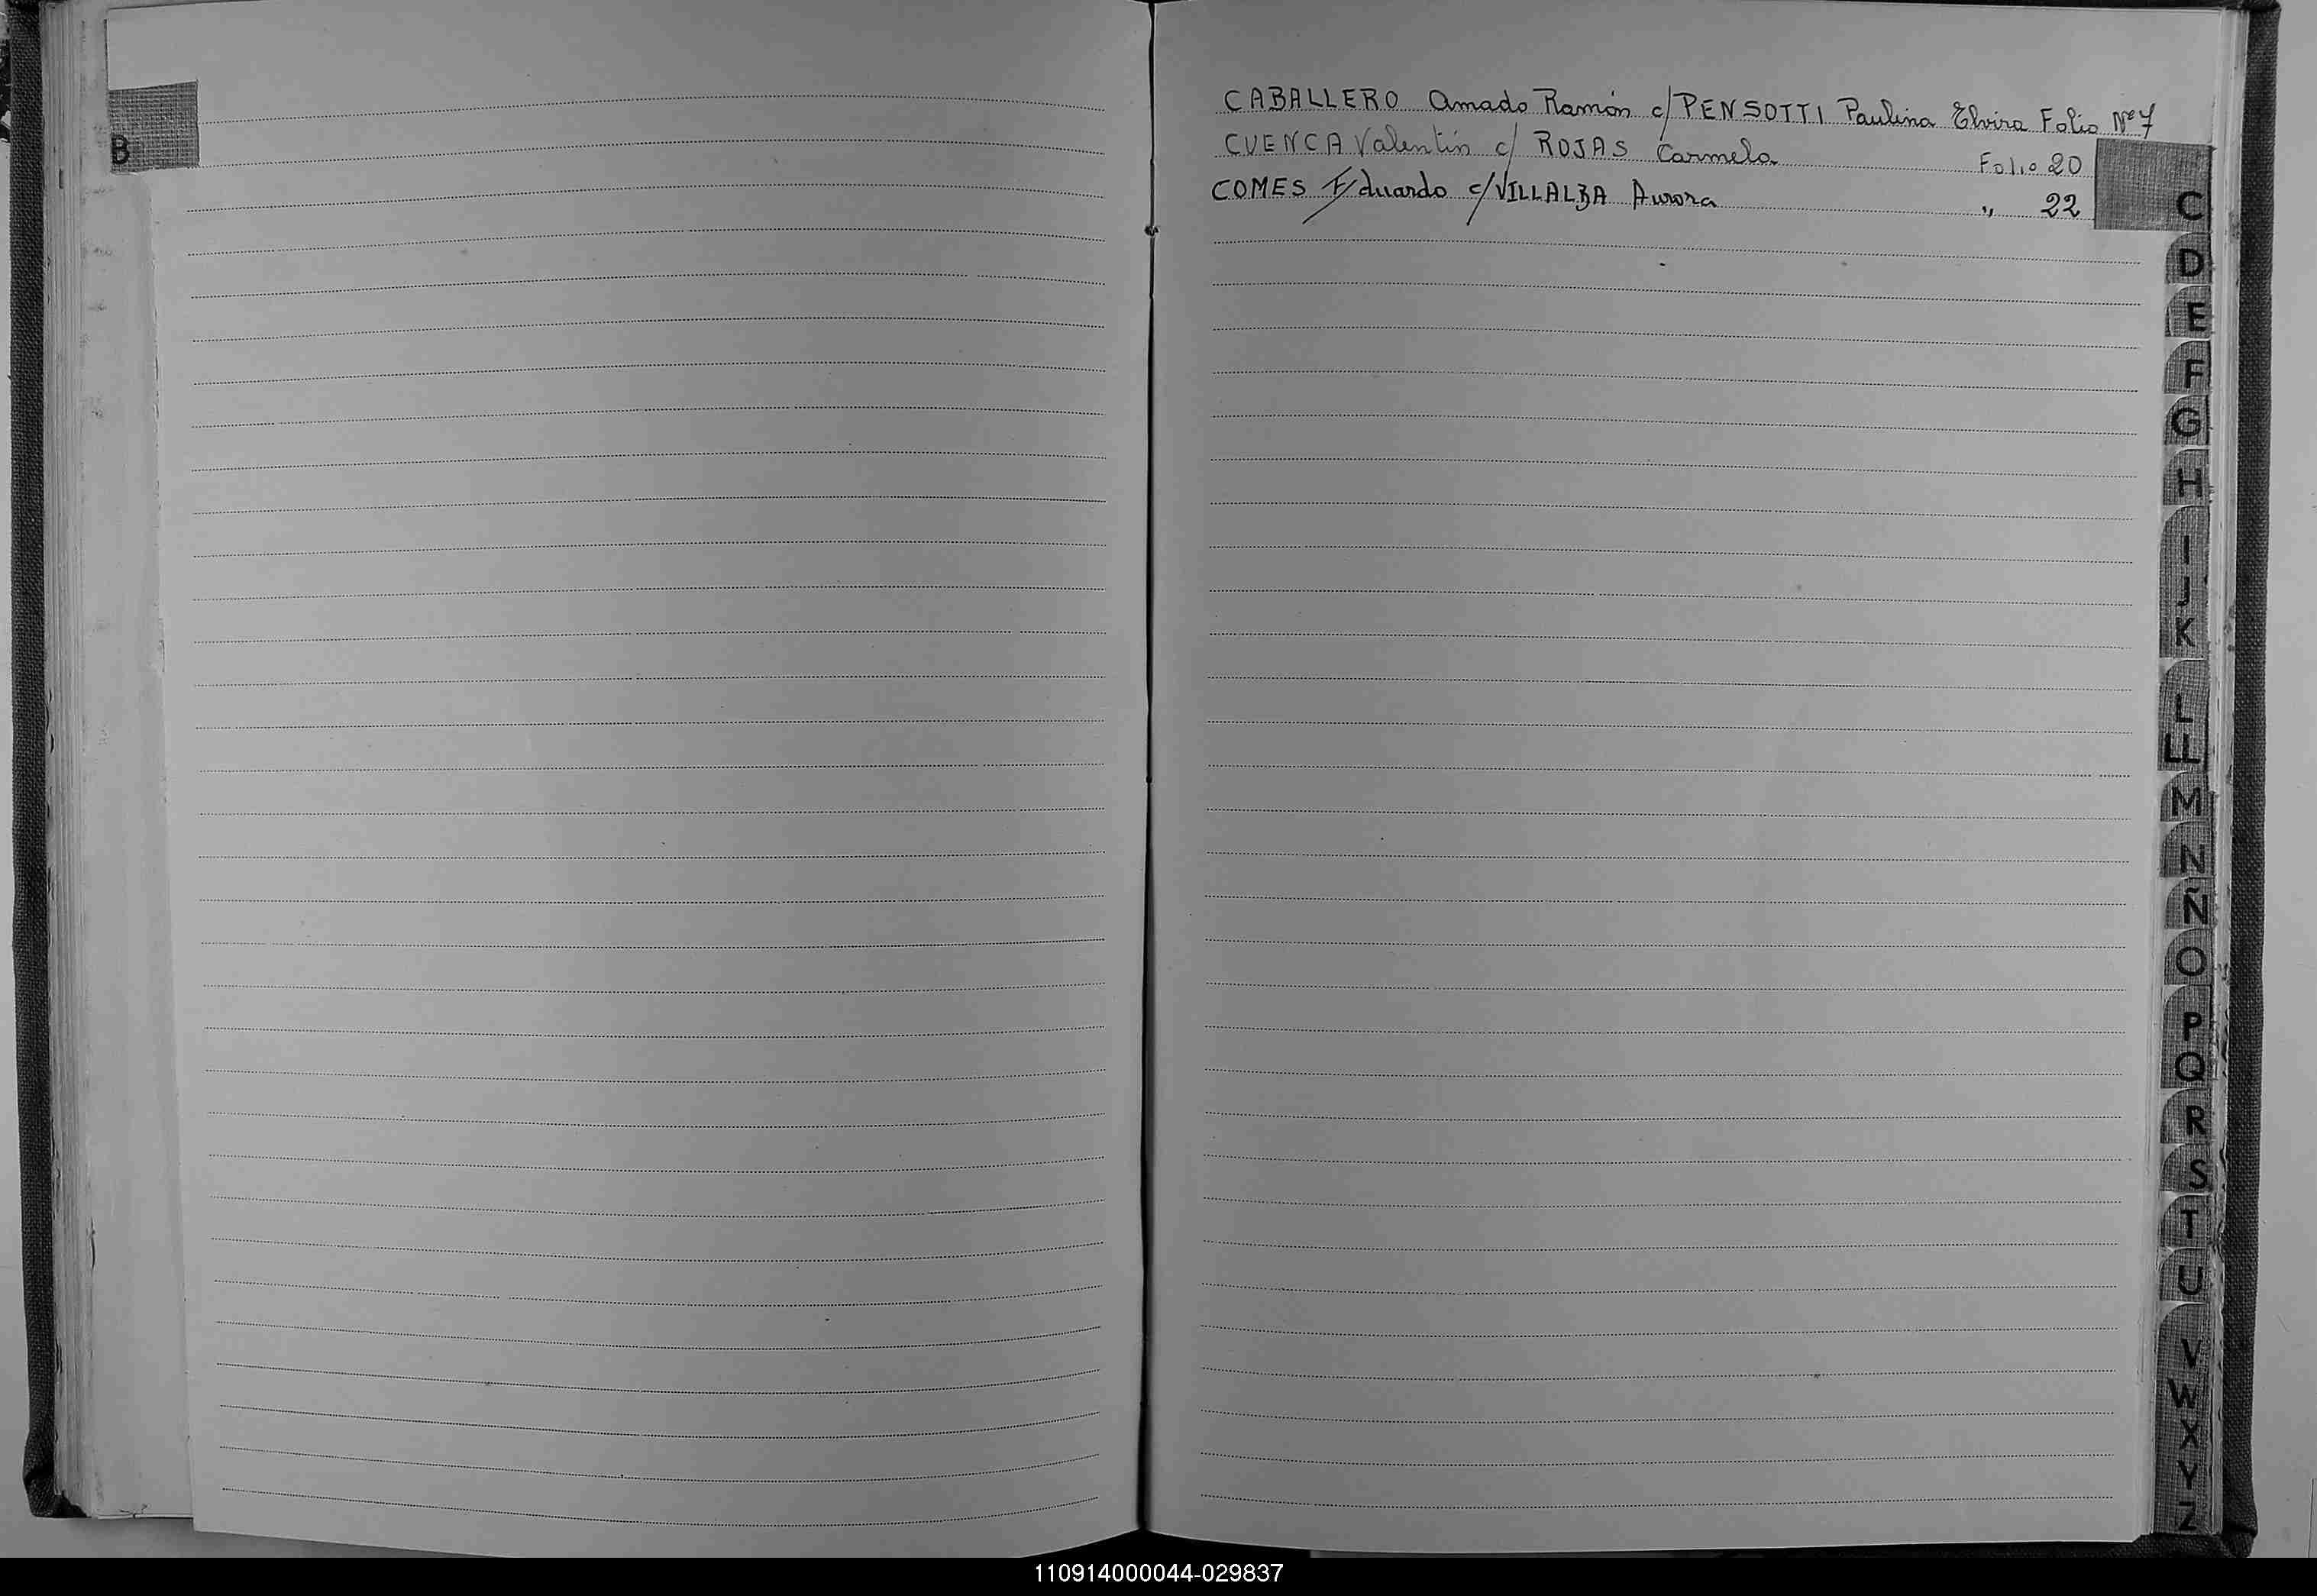 B
CABALLERO Amado Ramón c/ PENSOTTI Paulina Elvira Folio Nº 7
CUENCA Valentín c/ ROJAS Carmela Folio 20
COMES Eduardo c/ VILLALBA Aurora " 22
C
D
E
F
G
H
I
J
K
L
LL
M
N
Ñ
O
P
Q
R
S
T
U
V
W
X
Y
Z
110914000044-029837